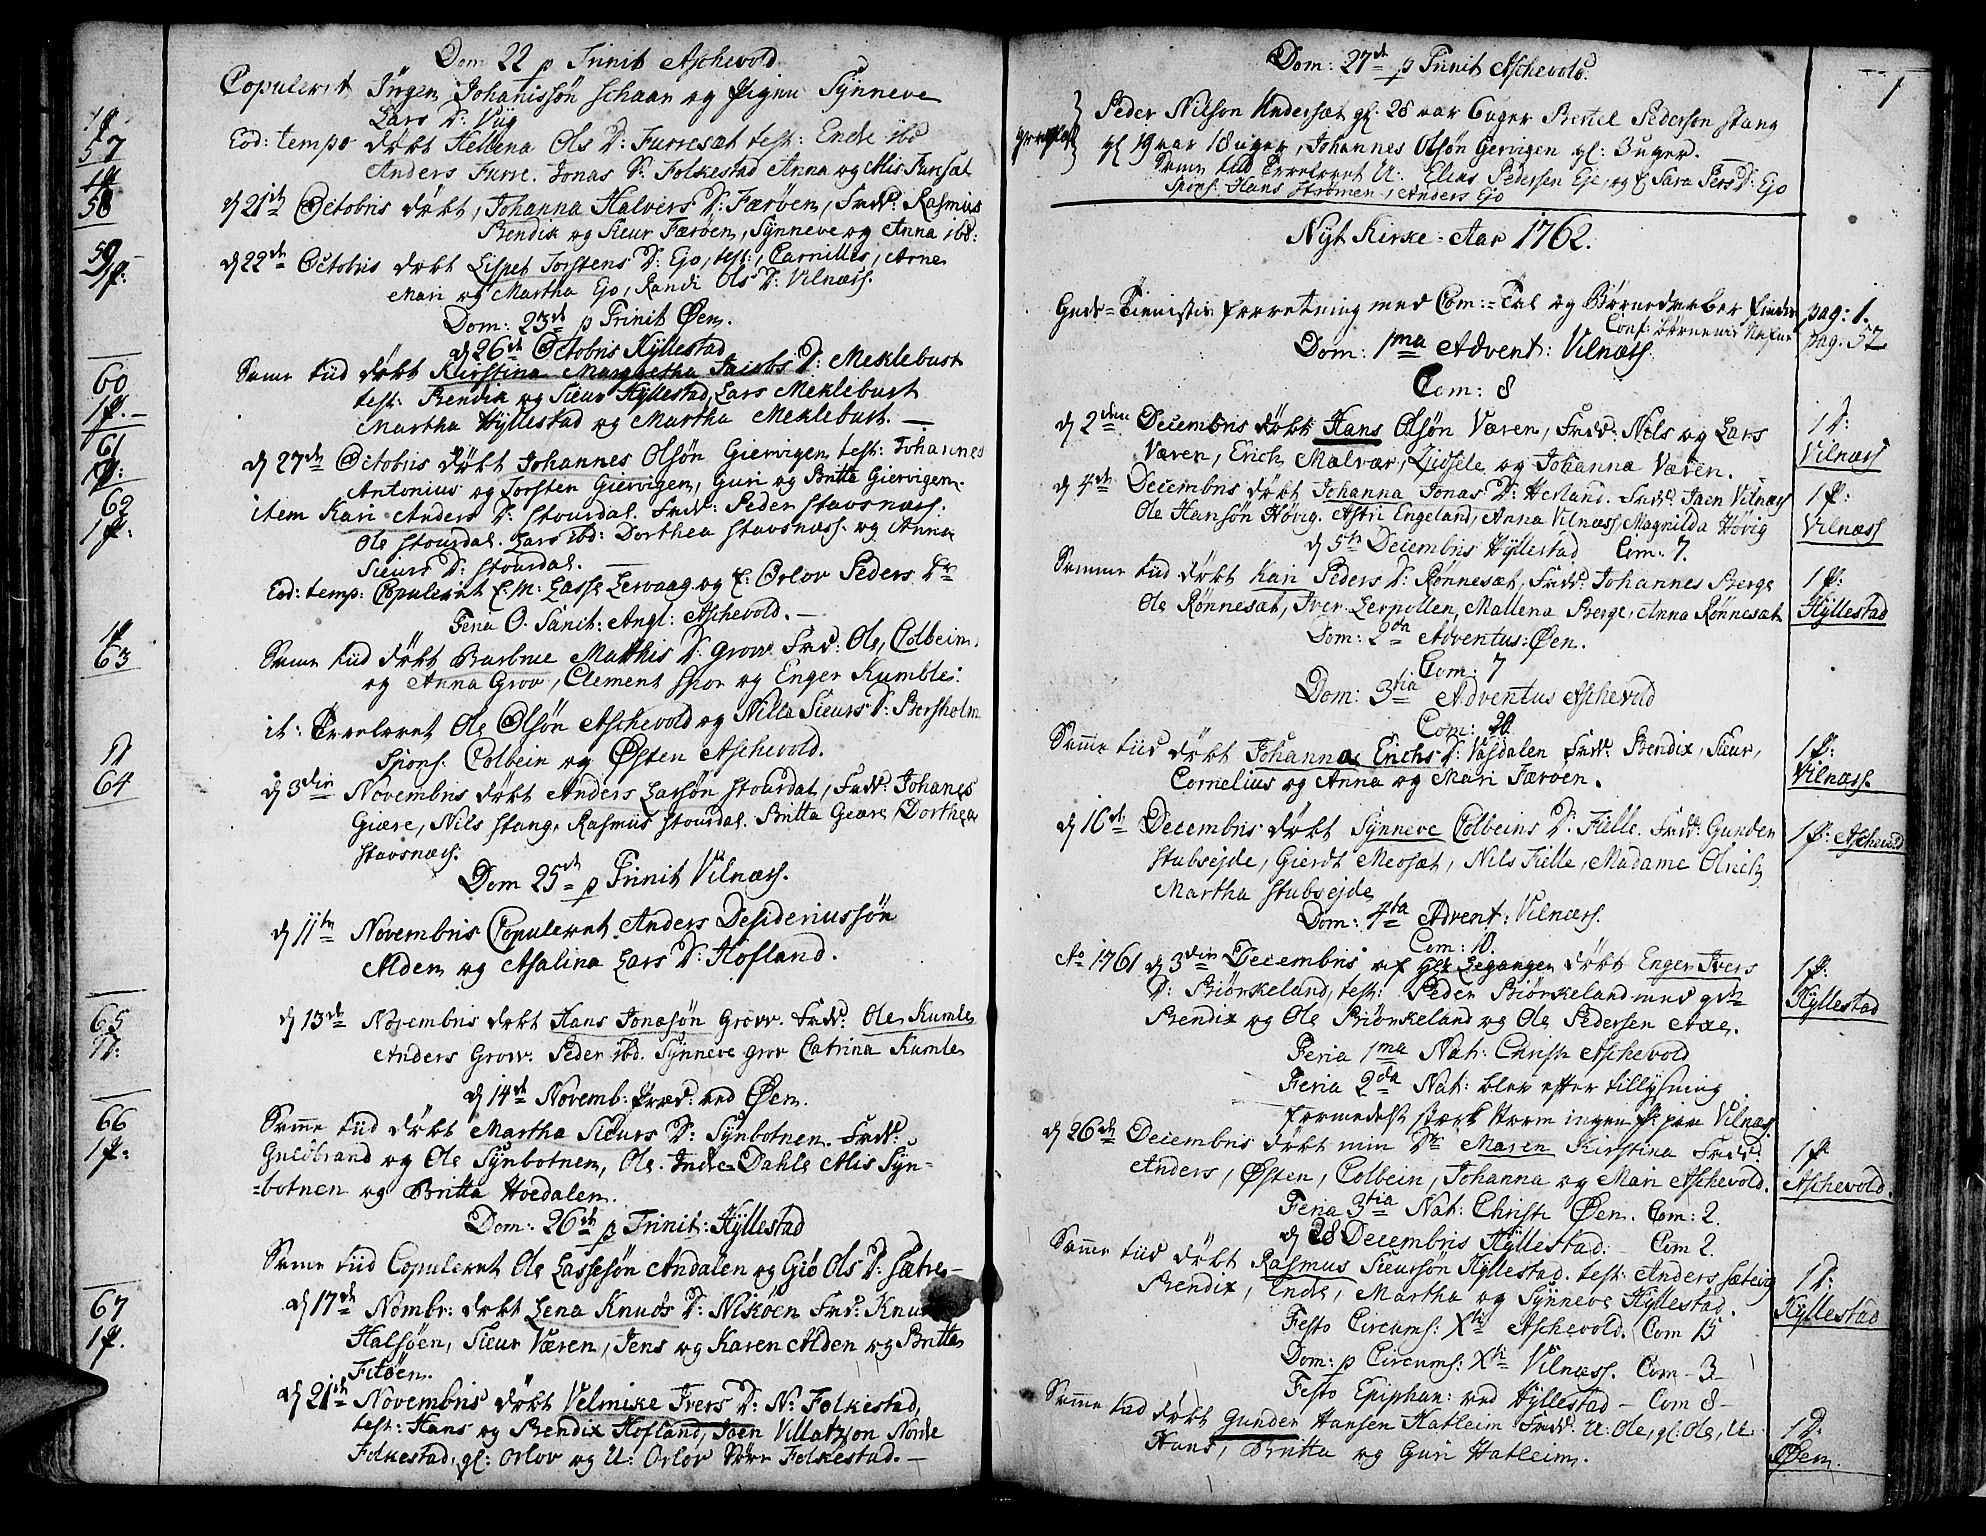 Dom 22 p Trinit Aschevold
Copuleret Jörgen Johanissön Schaar og Pigen Synneve
Lars D:
Eod: tempo döbt Hellena Ols D: Furresæt test: Ende ibd
57
Anders Furre. Jonas D: Folkestad Anna og Alis Furset
58
d 21de Octobris döbt, Johanna Halvers D: Færöen, Fadd: Rasmus
Bendix og Sieur Færöen, Synneve og Anna ibd:
59
1 p:
d 22de Octobris döbt Lispet Torstens D: Ejo, test: Carnilles, Arne
Mari og Martha Ejo, Randi Ols D: Vilnæss.
Dom: 23de p Trinit Öen.
d 26de Octobris Hyllestad
Same tiid döbt Kirstina Margretha Jacobs D: Meklebust
60
1 p.
test: Bendix og Sieur Hyllestad, Lars Meklebust
Martha Hyllestad og Martha Meklebust.
61
d 27de Octobris döbt Johannes Olsön Giervigen test: Johannes
Antonius og Torsten Giervigen, Guri og Britta Giervigen.
62
1 p.
item Kari Anders D: Stourdal. Fadd: Peder Stavsnæss.
Ole Stourdal. Lars ibd: Dorthea Stavsnæss. og Anna
Sieurs D: Stourdal.
Eod: temp: Copuleret E: M: Lasse Lervaag og E: Orlov Peders Dr
Feria O. Sanct: Angl: Aschevold.
63
Same tiid döbt Barbrue Mathis D: Grov Fad: Ole, Colbein,
og Anna Grov, Clement Spor og Enger Kumble:
it: Troloved Ole Olsön Aschevold og Nilla Sieurs D: Bersholm
Spons: Colbein og Östen Aschevold.
64
d 3die Novembris döbt Anders Larsön Stourdal, Fadd: Johanes
Giære, Nils Stang, Rasmus Stourdal. Britta Geære Dorthea
Stavsnæss.
Dom 25de p Trinit Vilnæss.
d 11te Novembris Copuleret Anders Desideriussön
Alden og Asalina Lars D: Hofland.
65
d 13de Novembris döbt Hans Jonasön Grov. Fadd: Ole Kumle
Anders Grov. Peder ibd. Synneve Grov Catrina Kumle
d 14de Novemb: Præd: ved Öen.
66
1 p.
Same tiid döbt Martha Sieurs D: Synbotnen. Fadd:
Guldbrand og Ole Synbotnen, Ole. Indre Dahle Alis Syn=
=botnen og Britta Hovdalen.
Dom: 26de p Trinit: Hyllestad
Same tiid Copuleret Ole Lassesön Andalen og Giö Ols D: Sætre
67
1 p.
d 17de Novmbr: döbt Lena Knuds D: Niköen Fad: Knu
Halsöen, Sieur Væren, Jens og Karen Alden og Britta
Fitöen.
d 21de Novembris döbt Velmike Ivers D: N: Folkestad,
test: Hans og Bendix Hofland, Joen Villatzon Nordre
Folkestad, gl: Orlov og U: Orlov Söre Folkestad.
Dom: 27de p Trinit Aschevold.
1
Peder Nilson Andersæt gl. 28 aar 6 uger Bertel Pederson Stang
gl 19 aar 18 uger, Johannes Olsön Gervigen gl: 3 uger.
Same tiid Troloved U: Elias Pedersen Ejo, og E Sara Pers D: Ejo
Spons: Hans Strömen, Anders Ejo
Nyt Kirke=Aar 1762.
Guds=Tienistis forretning med Com:=Tal og Börnedaaber findes pag: 1.
Conf: Börnenes Nafne pag. 52
Dom: 1ma Advent: Vilnæss.
Com: 8
d 2den Decembris döbt Hans Olsön Væren, Fadd: Nils og Lars
Væren, Erich Malvær, Zidsele og Johanna Væren.
1 D:
Vilnæss
d 4de Decembris döbt Johanna Jonas D: Herland. Fadd. Joen Vilnæss
Ole Hansön Hövig. Astri Engeland, Anna Vilnæss, Magnilda Hövig
1 p:
Vilnæss
d 5te Decembris Hyllestad Com: 7.
Samme tiid döbt Kari Peders D: Rönnesæt, Fadd: Johannes Berge
Ole Rönnesæt, Iver Lerpollen, Mallena Berge, Anna Rönnesæt
1 p:
Hyllestad
Dom: 2da Adventus: Öen.
Com: 7
Dom: 3tia Adventus Aschevold
Com: 20
Samme tiid döbt Johanna Erichs D: Vasdalen Fadd. Bendix, Sieur,
Cornelius og Anna og Mari Færöen.
1 p:
Vilnæss.
d 16de Decembris döbt Synneve Colbeins D. Fielle. Fadd: Gunder
Stubseide, Gierdt Meosæt, Nils Fielle, Madame Olrich
Martha Stubseide
1 p: Aschevold
Dom: 4ta Advent: Vilnæss.
Com: 10.
Ao 1761 d 3die Decembris af Legangen döbt Enger Ivers
D: Biörkeland, test: Peder Biörkeland med
Bendix og Ole Biörkeland og Ole Pedersen Axe.
1 p:
Hyllestad
Feria 1ma Nat: Christi Aschevold
Feria 2da Nat: blev efter tillysning
formedelst stærk storm ingen p: paa Vilnæs.
d 26de Decembris döbt min Dr Maren Kirstina Fadd:
Anders, Östen, Colbein, Johanna og Mari Aschevold.
1 p
Aschevold.
Feria 3tia Nat: Christi Öen. Com: 2.
d 28 Decembris Hyllestad. Com 2.
Samme tiid döbt Rasmus Sieursön Hyllestad. test: Anders Sætevig
Bendix, Ende, Martha og Synneve Hyllestad.
1 D:
Hyllestad
Festo Circums: Xti Aschevold. Com 15
Dom: p Circums: Xti Vilnæss. Com 3
Festo Epiphan: ved Hyllestad Com 8
Samme tiid döbt Gunder Hansen Hatleim Fadd: U: Ole, gl: Ole, U
Hans, Britta og Guri Hatleim.
1 D:
Öen.